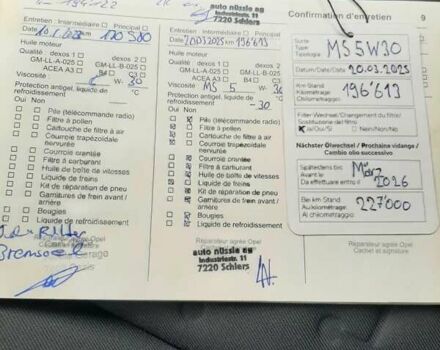 auto nüssle ag
Industriestr. 11
7220 Schiers
Confirmation d'entretien
9
Entretien : Intermédiaire ☐ Principal ☐
Date
km
Huile moteur
Qualité : dexos 1 ☐ dexos 2 ☐
GM-LL-A-025 ☐ GM-LL-B-025 ☐
ACEA A3 ☐ B4 ☐ C3 ☐
Viscosité W- 30
Protection antigel, liquide de
refroidissement °C
Oui Non
Pile (télécommande radio)
Filtre à pollen
Cartouche de filtre à air
Courroie trapézoïdale
nervurée
Courroie crantée
Filtre à carburant
Huile de boîte de vitesses
Liquide de freins
Kit de réparation de pneu
Garnitures de frein avant/
arrière
Bougies
Liquide de refroidissement
Réparateur agréé Opel
Cachet et signature
Entretien : Intermédiaire ☐ Principal ☐
Date 20.03.2025 km 196'613
Huile moteur
Qualité : dexos 1 ☐ dexos 2
GM-LL-A-025 ☐ GM-LL-B-025
ACEA A3 ☐ B4 ☐ C3
Viscosité MS 5 W- 30
Protection antigel, liquide de
refroidissement -30
Oui Non
Pile (télécommande radio)
Filtre à pollen
Cartouche de filtre à air
Courroie trapézoïdale
nervurée
Courroie crantée
Filtre à carburant
Huile de boîte de vitesses
Liquide de freins
Kit de réparation de pneu
Garnitures de frein avant/
arrière
Bougies
Liquide de refroidissement
Réparateur agréé Opel
auto nüssle ag
Industriestr. 11
7220 Schiers
Sorte
Type
Tipologia
MS 5W30
Datum/Date/Data 20.03.2025
Km Stand
Kilométrage
Chilometraggio
196'613
Filter Wechsel/Changement du filtre/
Sostituzione del filtro
Ja/Oui/Si ☐ Nein/Non/No
Nächster Ölwechsel / Prochaine vidange /
Cambio olio successivo
Spätestens bis
Avant le
Da effettuare entro il
März
2026
Bei km Stand
Au kilométrage
Al chilometraggio
227'000
Réparateur agréé Opel
Cachet et signature